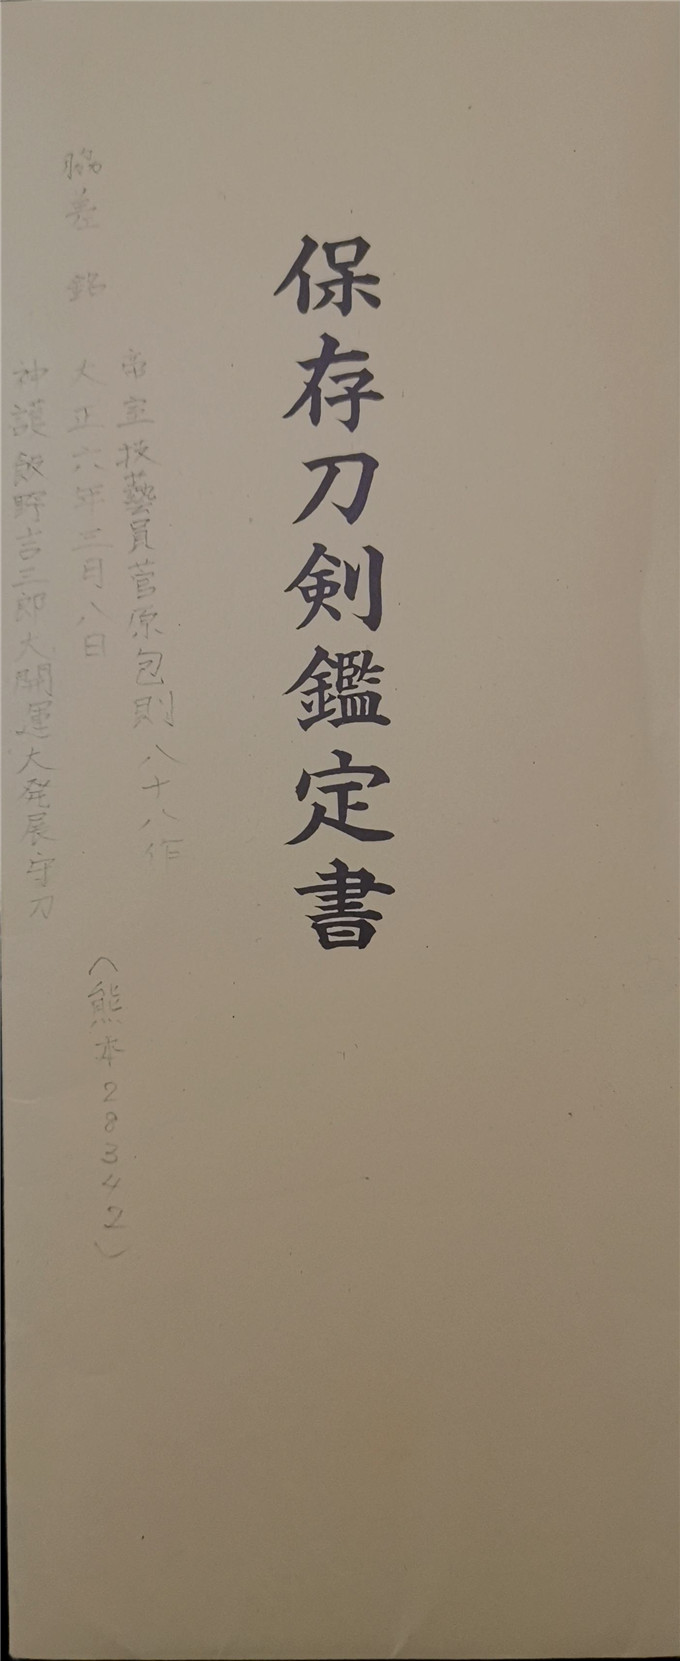 保存刀剣鑑定書
脇差 銘
帝室技藝員菅原包則八十八作
大正六年三月八日
神護飯野吉三郎大開運大発展守刀
(熊本28342)